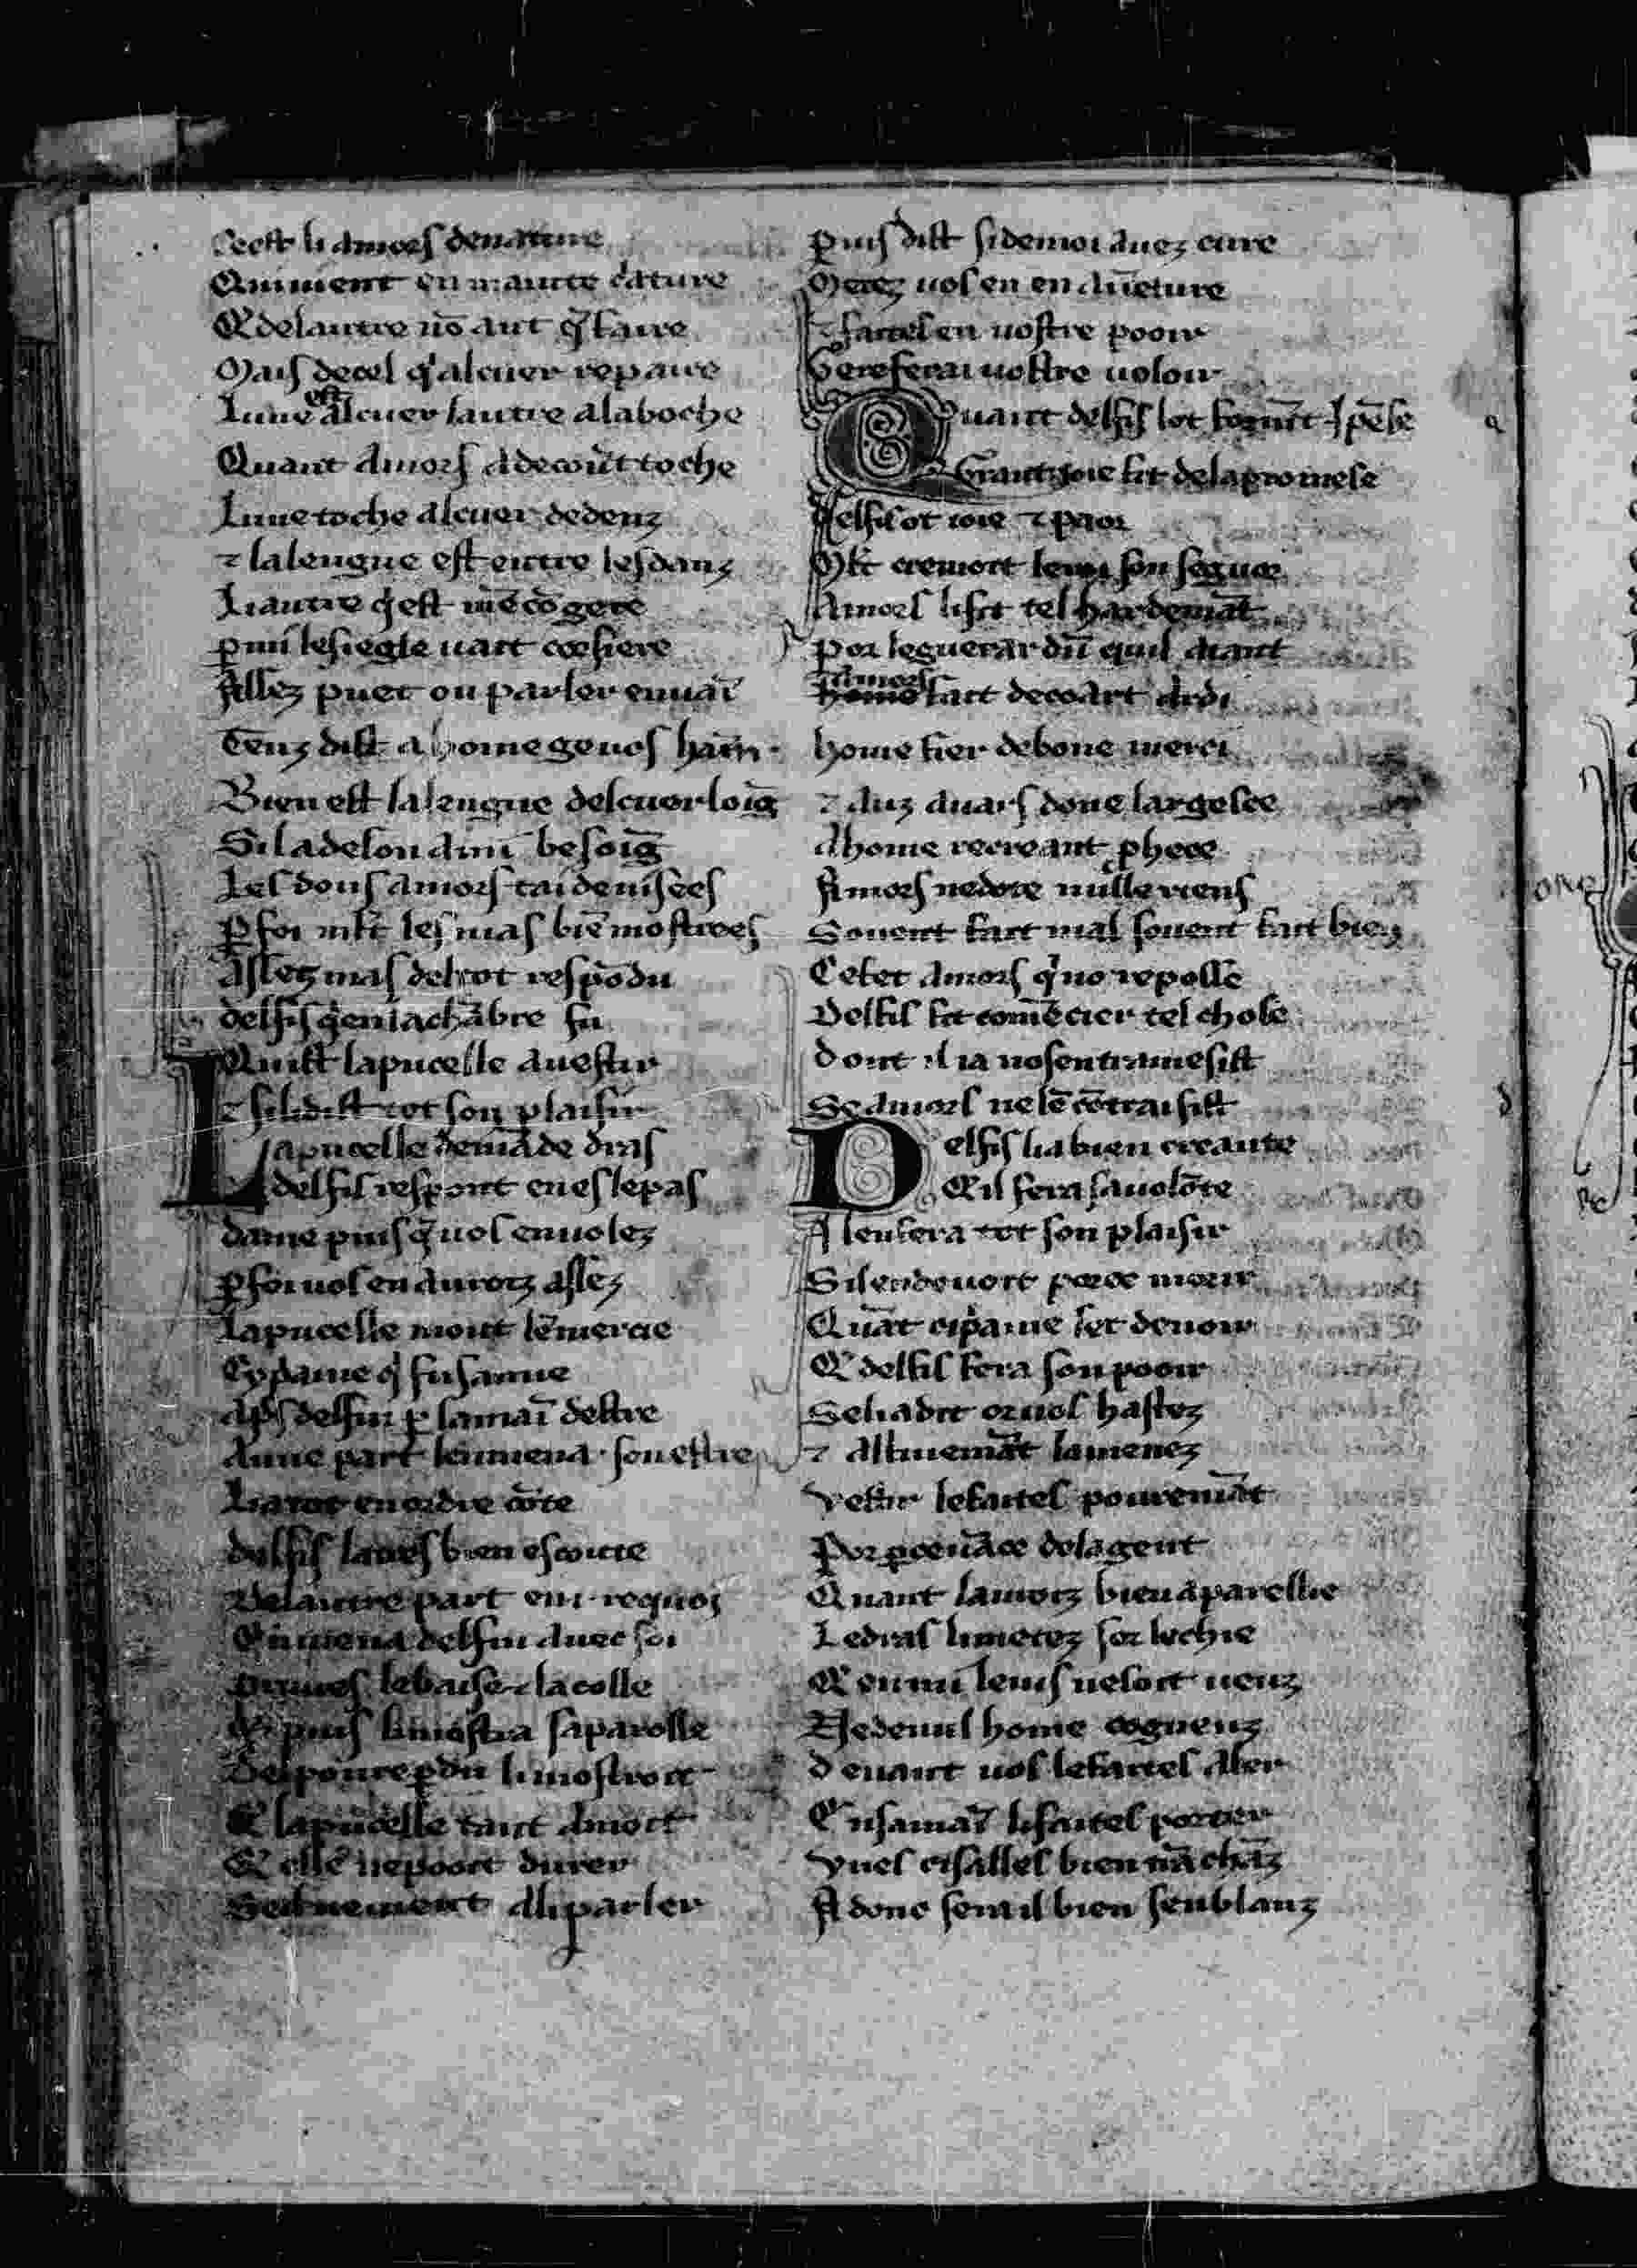 Ceest li amors denature
Qui uient en mainte c̾ature
Q̄ delautre nō ait q̄ faire
Mais decel q̾ alcuer repaire
Lune est alcuer lautre alaboche
Quant amors adecoūt toche
Lune toche alcuer dedenz
⁊ lalengue est entre lesdanz
Liautre q̾ est mēcōgere
ꝑmi lesiegle uait
Assez puet on parler enuaī
Tenz dist a home geuos hain
Bien est lalengue delcuer loiḡ
Sil adeson ami besoiḡ
Les dous amors tai deuisees
ꝑ foi mlt̄ les mas biē mostrees
Assez mas deltot respōdu
delfis q̾ enlachābre fu
Quist lapucelle auestir
⁊ silidist tot son plaisir
Lapucelle demāde dras
delfis respont eneslepas
dame puis q̄ uos enuolez
ꝑ foi uos en aurois assez
Lapucelle mout lē mercie
Eypame q̾ fu samie
Ap̄s delfin ꝑ lamaī destre
Aune part lenmena senestre
Lia tot en ordre cōte
delfis laues bien escoute
Delautre part en .i. requoi
Enmena delfin auec soi
lebaise ⁊ lacolle
Et puis limostra saparolle
ꝑdu limostroit
Q̄ lapucelle tant amoit
Q̄ elle nepooit durer
aliparler
Puis dist sidemoi auez cure
Metez uos en en auēture
⁊ faites en uostre pooir
Gereferai uostre uoloir
Quant delfis lot
Grant ioie fit delapromese
Delfis ot ioie ⁊ paor
Mlt̄ cremoit son segnor
Amors lifit tel hardemāt
Por leguerardū quil atant
Amors fait decoart ardi
home fier debone merci
⁊ auz auars done largesce
Ahome recreant ꝓhece
Amors nedote nulle riens
Souent fait mal souent fait bien
Cefet amors q̾ no repolle
Delfis fit comēcier tel chose
dont il ia nosentramesist
Se amors ne lē cōtraisist
Delfis lia bien creante
Q̄ il fera sauolōte
Alenfera tot son plaisir
Silendeuoit morir
Quāt cipame fet deuoir
Q̄ delfis fera son pooir
Seliadit or uos hastez
⁊ lamenez
Vestir lefaites poureniāt
Por
Quant lauroiz bien aparellie
Ledras limetez sor lechie
Q̄ enmi leuis nesoit ueuz
Nedenul home cogneuz
deuant uos lefaites aler
Ensamaī lifaites porter
bien
Adonc sera il bien senblanz